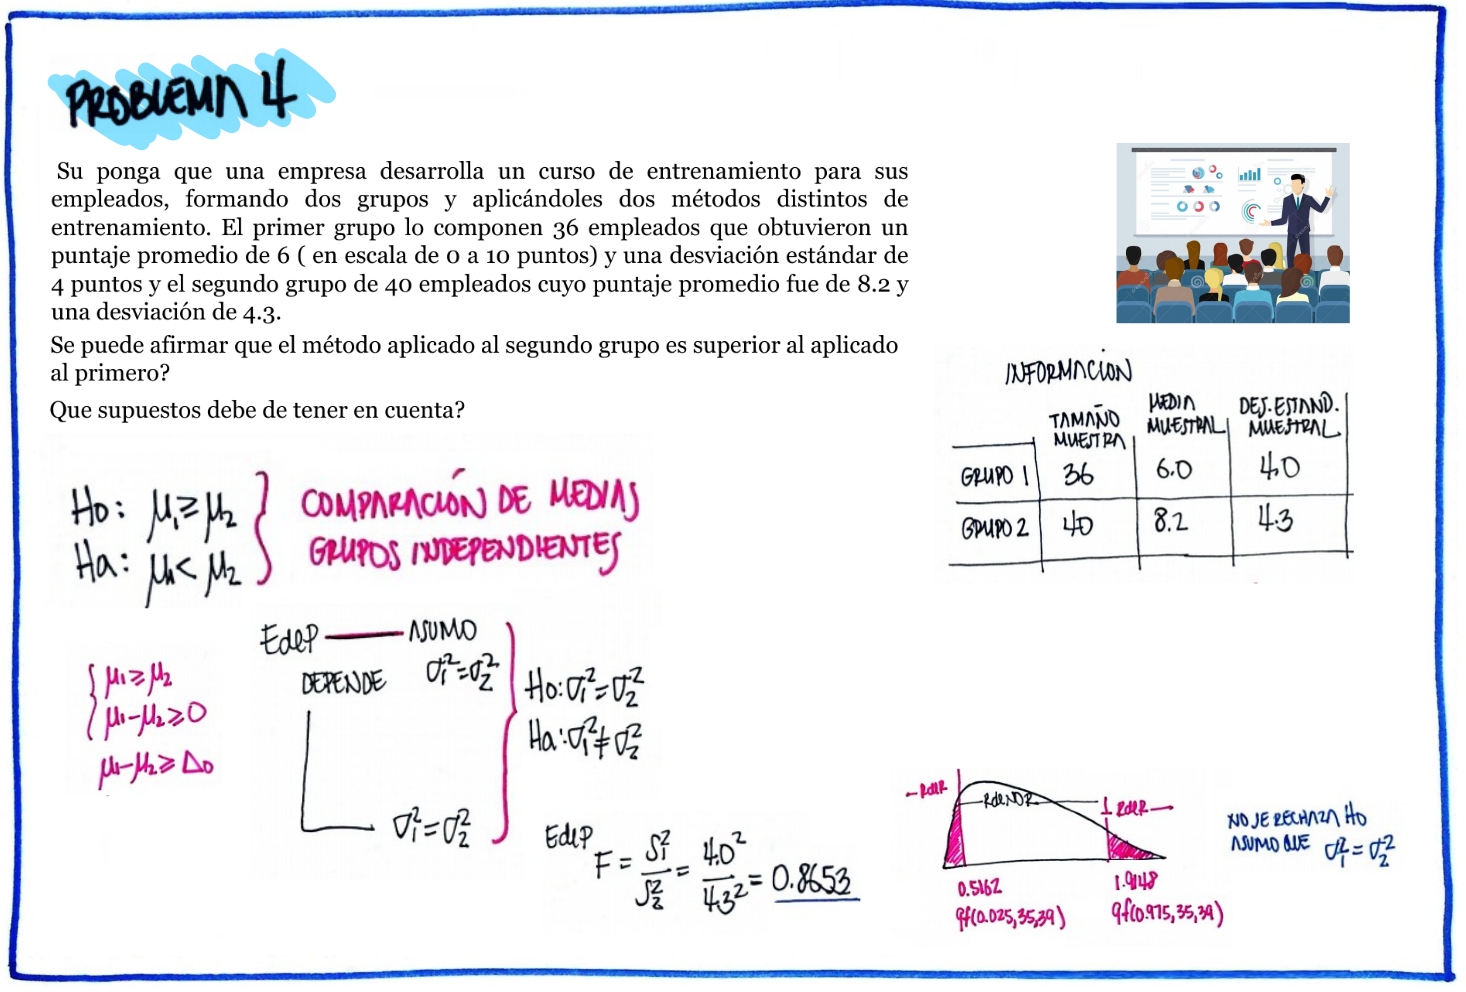 PROBLEMA 4
Su ponga que una empresa desarrolla un curso de entrenamiento para sus
empleados, formando dos grupos y aplicándoles dos métodos distintos de
entrenamiento. El primer grupo lo componen 36 empleados que obtuvieron un
puntaje promedio de 6 ( en escala de 0 a 10 puntos) y una desviación estándar de
4 puntos y el segundo grupo de 40 empleados cuyo puntaje promedio fue de 8.2 y
una desviación de 4.3.
Se puede afirmar que el método aplicado al segundo grupo es superior al aplicado
al primero?
Que supuestos debe de tener en cuenta?
INFORMACIÓN
TAMAÑO MUESTRA
MEDIA MUESTRAL
DES. ESTAND. MUESTRAL
GRUPO 1 36 6.0 4.0
GRUPO 2 40 8.2 4.3
Ho: μ₁ ≥ μ₂
Ha: μ₁ < μ₂
COMPARACIÓN DE MEDIAS
GRUPOS INDEPENDIENTES
μ₁ ≥ μ₂
μ₁-μ₂ ≥ 0
μ₁-μ₂ ≥ Δ₀
EdeP ASUMO
DEPENDE σ₁²=σ₂²
Ho: σ₁²=σ₂²
Ha: σ₁²≠σ₂²
σ₁²=σ₂²
EdeP
F = S₁²/S₂² = 4.0²/4.3² = 0.8653
RdeR
RdeNOR
RdeR
0.5162
qf(0.025,35,39)
1.9148
qf(0.975,35,39)
NO SE RECHAZA Ho
ASUMO QUE σ₁²=σ₂²